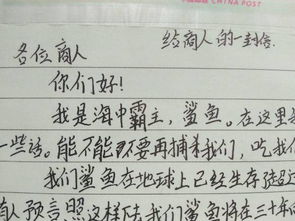 CHINA POST
给商人的一封信
各位商人
你们好!
我是海中霸主,鲨鱼。在这里
一些话。能不能不要再捕杀我们,吃我们
我们鲨鱼在地球上已经生存
人预言照这样下去我们鲨鱼将在三十